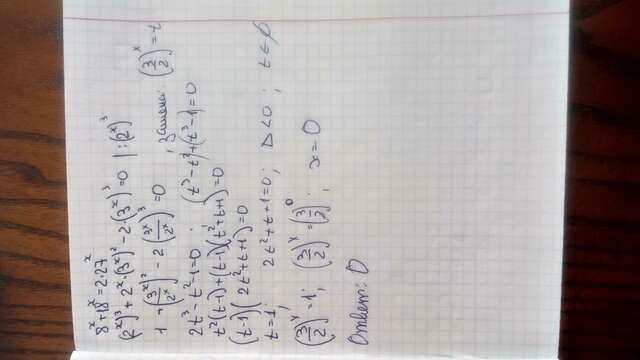 8^x + 18^x = 2·27^x
(2^x)^3 + 2^x·(3^x)^2 - 2·(3^x)^3 = 0 | :(2^x)^3
1 + (3^x/2^x)^2 - 2(3^x/2^x)^3 = 0 ; замена: (3/2)^x = t
2t^3 - t^2 - 1 = 0 ; (t^3 - t^2) + (t^3 - 1) = 0
t^2(t-1) + (t-1)(t^2+t+1) = 0
(t-1)(2t^2+t+1) = 0
t = 1; 2t^2+t+1 = 0; D<0; t∈∅
(3/2)^x = 1; (3/2)^x = (3/2)^0; x = 0
Ответ: 0